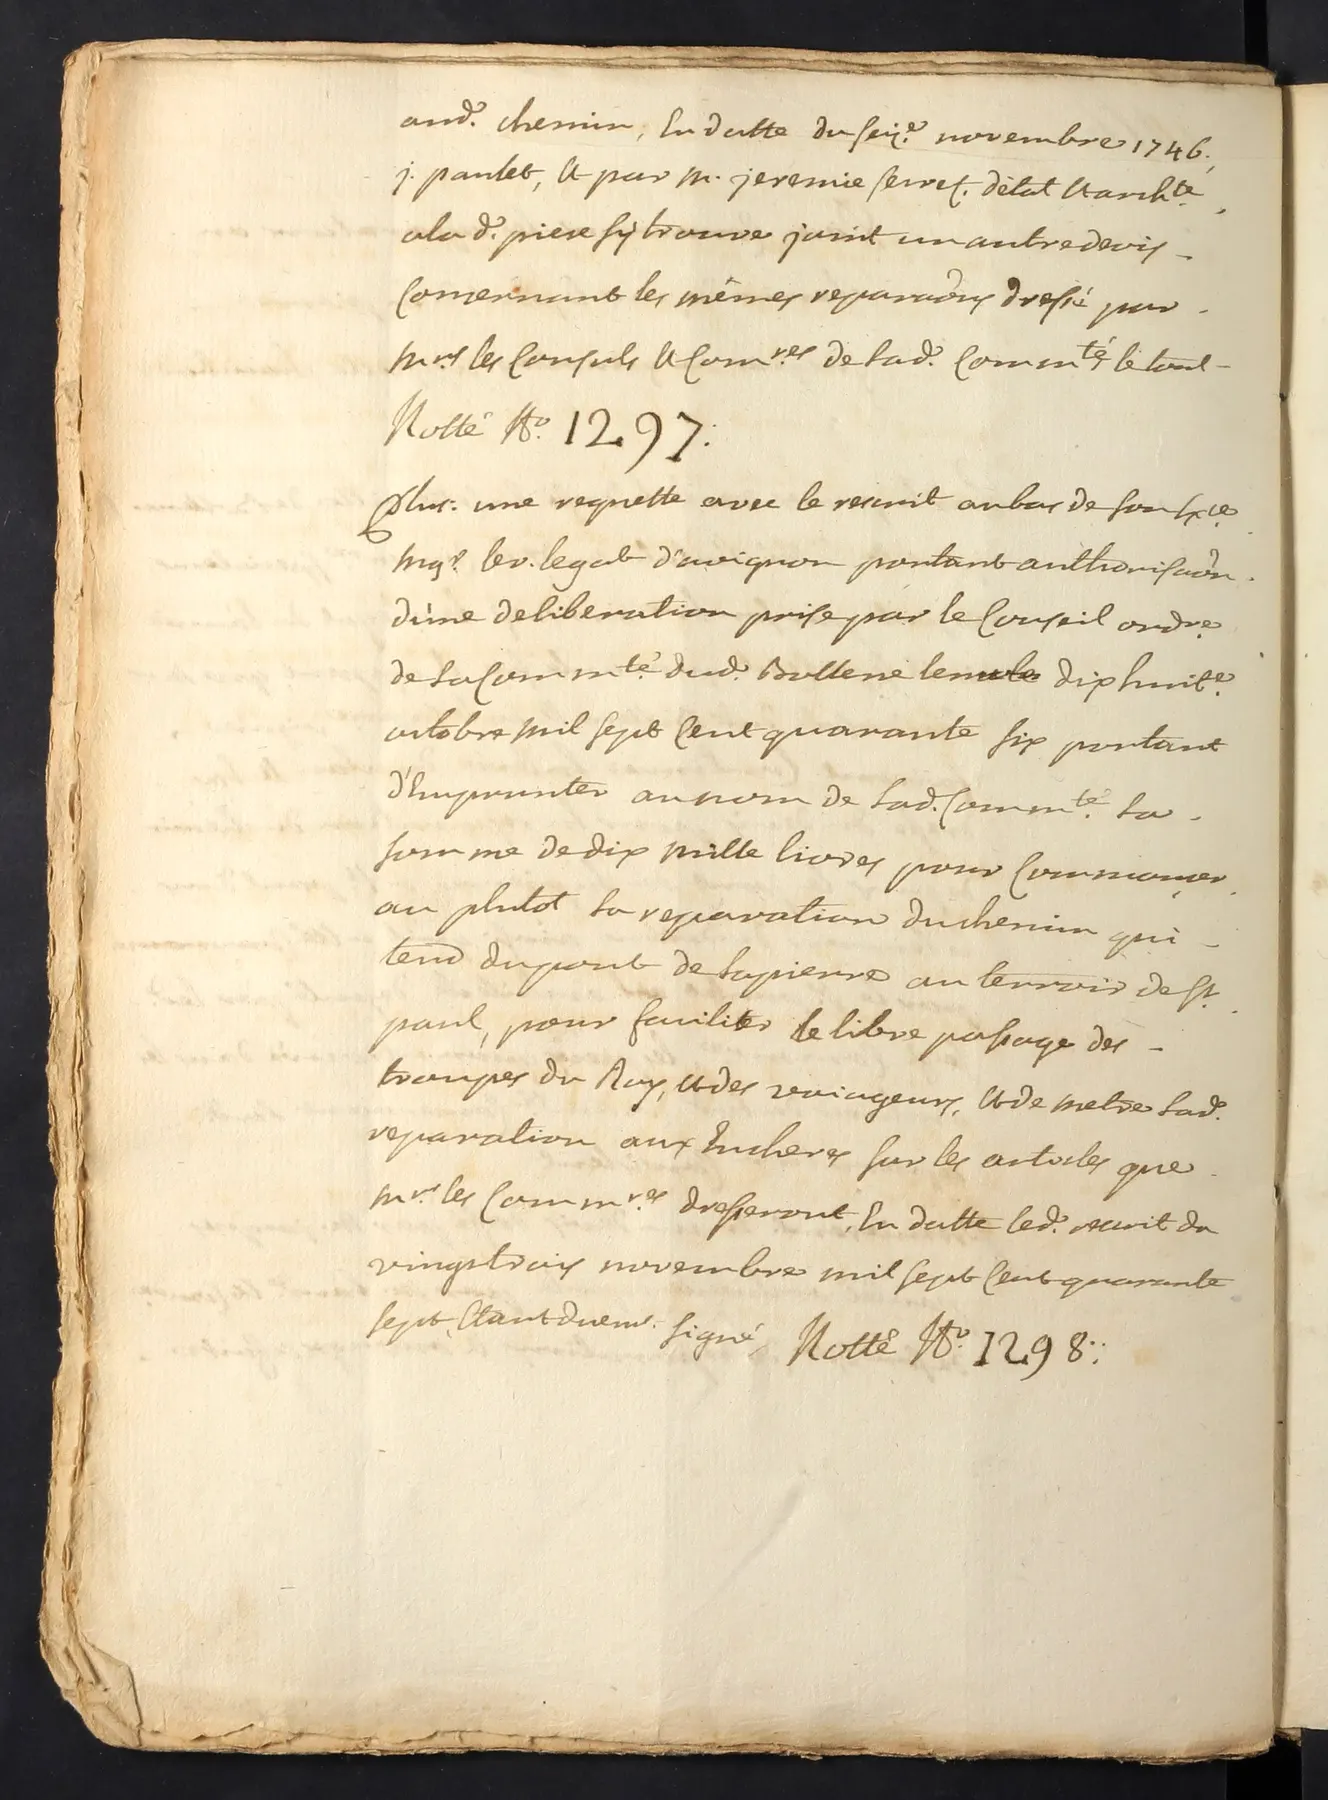 aud.e chemin, En datte du seiz.e novembre 1746.,
j. paulet, et par m. jeremie secret. d'etat et archte.,
a la d.e piece s'y trouve joint un autre devis -
Concernant les mêmes reparaôns dressé par -
mrs les Consuls et Com.res de lad.e Comm.té, le tout -
Notté N.o 1297:
Plus: une requette avec le rescrit au bas de son Exce.
mgr. le v. legat d'avignon portant authorisaôn.
d'une deliberation prise par le Conseil ordre.
de la Comm.té dud.e Bollene le dix huit.e
octobre mil sept Cent quarante six portant
d'Emprunter au nom de lad. Comm.té la -
somme de dix mille livres pour Commancer
au plutot la reparation du chemin qui -
tend du pont de la pierre au terroir de St.
paul, pour faciliter le libre passage des -
troupes du Roy, et des voiageurs, et de metre lad.e
reparation aux Encheres sur les articles que
mrs. les Comm.res dresseront, En datte led.e rescrit du
vingt trois novembre mil sept Cent quarante
sept, Etant duem.t signé, Notté N.o 1298: